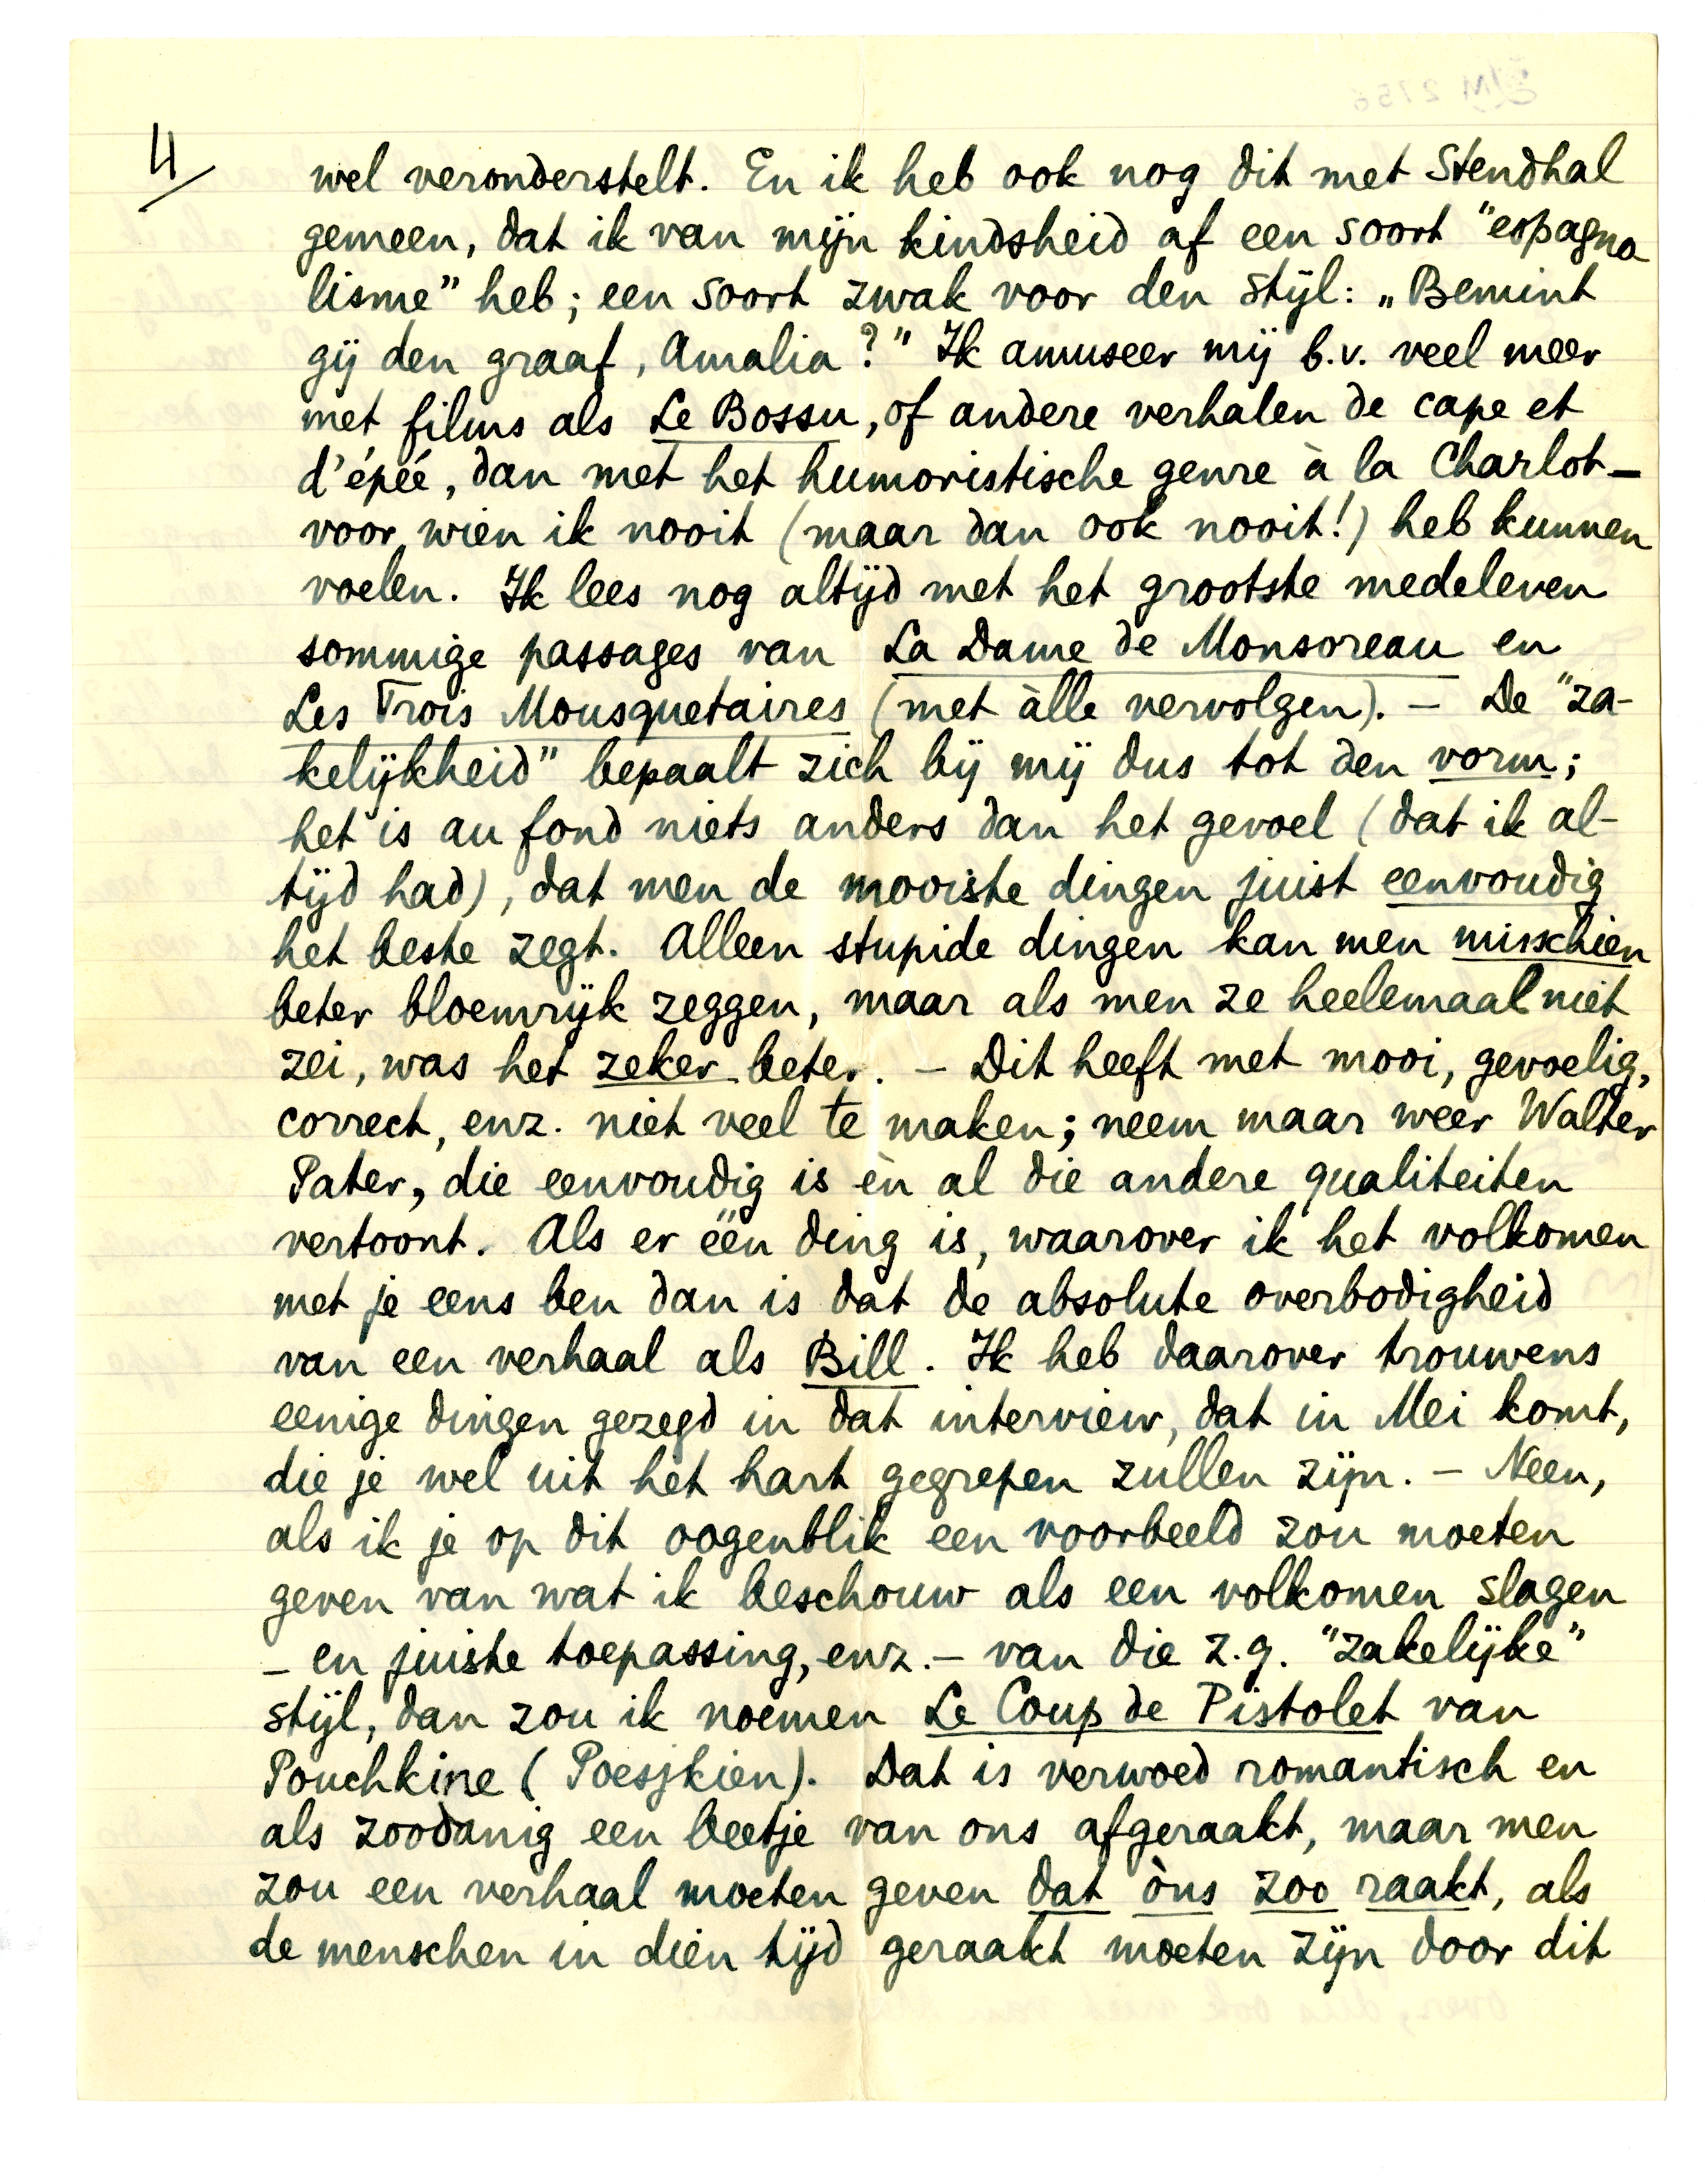 4/
wel veronderstelt. En ik heb ook nog dit met Stendhal
gemeen, dat ik van mijn kindsheid af een soort "espagno
lisme" heb; een soort zwak voor den stijl: „Bemint
gij den graaf, Amalia?" Ik amuseer mij b.v. veel meer
met films als Le Bossu, of andere verhalen de cape et
d'épéé, dan met het humoristische genre à la Charlot –
voor wien ik nooit (maar dan ook nooit!) heb kunnen
voelen. Ik lees nog altijd met het grootste medeleven
sommige passages van La Dame de Monsoreau en
Les Trois Mousquetaires (met àlle vervolgen). – De "za-
kelijkheid" bepaalt zich bij mij dus tot den vorm;
het is au fond niets anders dan het gevoel (dat ik al-
tijd had), dat men de mooiste dingen juist eenvoudig
het beste zegt. Alleen stupide dingen kan men misschien
beter bloemrijk zeggen, maar als men ze heelemaal niet
zei, was het zeker beter. – Dit heeft met mooi, gevoelig,
correct, enz. niet veel te maken; neem maar weer Walter
Pater, die eenvoudig is èn al die andere qualiteiten
vertoont. Als er één ding is, waarover ik het volkomen
met je eens ben dan is dat de absolute overbodigheid
van een verhaal als Bill. Ik heb daarover trouwens
eenige dingen gezegd in dat interview, dat in Mei komt,
die je wel uit het hart gegrepen zullen zijn. – Neen,
als ik je op dit oogenblik een voorbeeld zou moeten
geven van wat ik beschouw als een volkomen slagen
– en juiste toepassing, enz. – van die z.g. "zakelijke"
stijl, dan zou ik noemen Le Coup de Pistolet van
Pouchkine (Poesjkien). Dat is verwoed romantisch en
als zoodanig een beetje van ons afgeraakt, maar men
zou een verhaal moeten geven dat òns zoo raakt, als
de menschen in dien tijd geraakt moeten zijn door dit